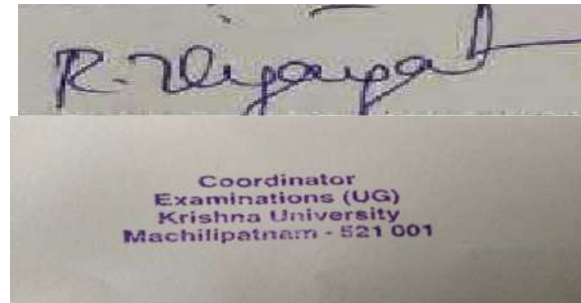 Coordinator
Examinations (UG)
Krishna University
Machilipatnam - 521 001